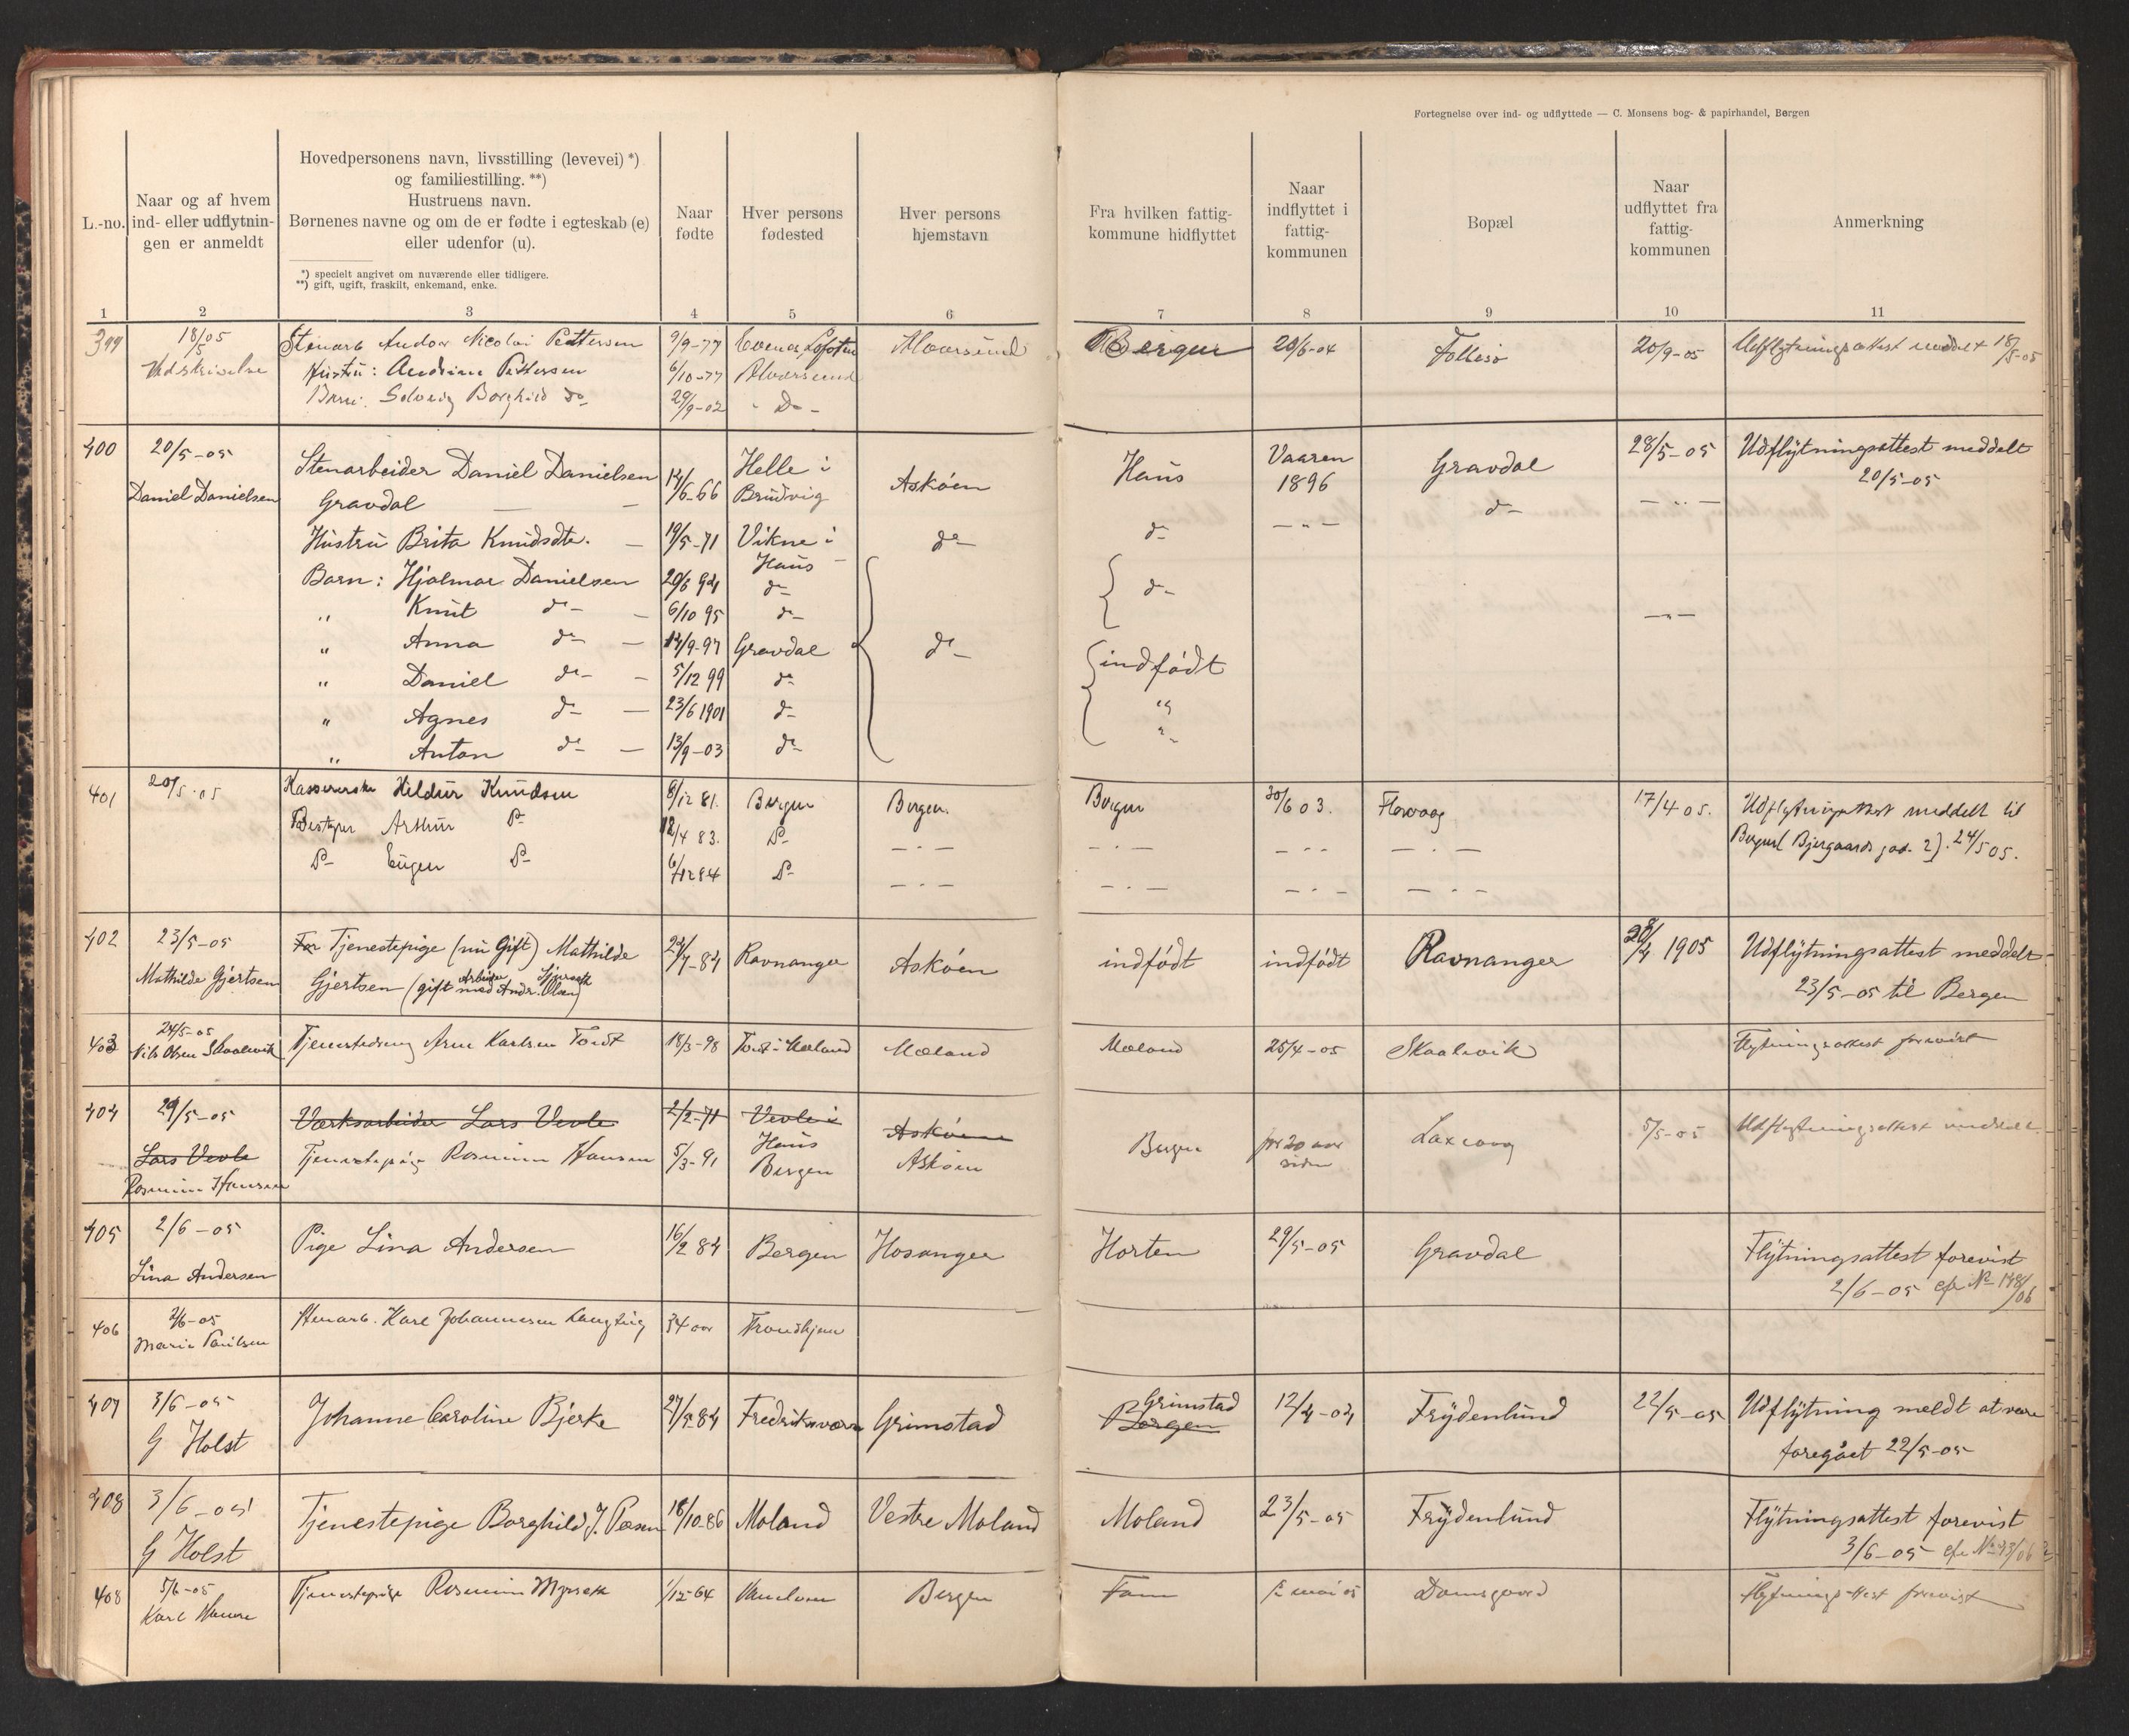 Fortegnelse over ind- og udflyttede — C. Monsens bog- & papirhandel, Bergen
L.-no.
Naar og af hvem
ind- eller udflytnin-
gen er anmeldt
Hovedpersonens navn, livsstilling (levevei) *)
og familiestilling. **)
Hustruens navn.
Børnenes navne og om de er fødte i egteskab (e)
eller udenfor (u).
*) specielt angivet om nuværende eller tidligere.
**) gift, ugift, fraskilt, enkemand, enke.
Naar
fødte
Hver persons
fødested
Hver persons
hjemstavn
Fra hvilken fattig-
kommune hidflyttet
Naar
indflyttet i
fattig-
kommunen
Bopæl
Naar
udflyttet fra
fattig-
kommunen
Anmerkning
1 2 3 4 5 6 7 8 9 10 11
399 18/5 05 Stenarb Andor Nicolai Pettersen 9/9-77 Lofoten Alversund Bergen 20/6-04 Follesø 20/9-05 Udflytningsattest meddelt 18/5-05
Hustru: Andrine Pettersen 6/10-77 Alversund
Barn: Solveig Borghild do 29/9-02 - Do -
400 20/5-05 Stenarbeider Daniel Danielsen 14/6-66 Helle i Askøen Haus Vaaren Gravdal 28/5-05 Udflytningsattest meddelt
Daniel Danielsen Gravdal — Brudvig 1896 d- — " — 20/5-05
Hustru Brita Knudsdtr. — 19/5-71 Vikne i d- d- — " —
Haus
Barn: Hjalmar Danielsen 20/6 94 d- d-
" Knut d- — 6/10 95 d- — " —
" Anna d- — 14/9-97 Gravdal d- indfødt
" Daniel d- — 5/12 99 d-
" Agnes d- — 23/6 1901 d- "
" Anton d- — 13/9-03 d- "
401 20/5-05 Kassererske Hildur Knudsen 8/12 81. Bergen Bergen. Bergen 30/6 03. Florvaag 17/4 05. Udflytningsattest meddelt til
Bestyrer Arthur D- 12/4 83. D- — · — — · — — · — — · — Bergen ( Bjergaards gad. 2). 24/5 05.
D- Eugen D- 6/12 84 D- — · — — · — — · — — · —
402 23/5-05 Før Tjenestepige (nu Gift) Mathilde 24/7-84 Ravnanger Askøen indfødt indfødt Ravnanger 28/4 1905 Udflytningsattest meddelt
Mathilde Gjertsen Gjertsen (gift med Arbeider Andr. Olsen) 23/5-05 til Bergen
403 24/5-05 Tjenestedreng Arne Karlsen Toft 18/3-98 Toft i Mæland Mæland Mæland 25/4-05 Skaalevik Flytningsattest forevist
Nils Olsen Skaalevik
404 29/5-05 Værksarbeider Lars Vevle 2/2-71 Vevle i Askøen
Haus
Lars Vevle Tjenestepige Rosmine Hansen 5/3-91 Bergen Askøen Bergen for 20 aar siden 5/5-05 Udflytningsattest meddelt
Rosmine Hansen
405 2/6-05 Pige Lina Andersen 16/2 84 Bergen Hosanger Horten 29/5-05 Gravdal Flytningsattest forevist
Lina Andersen 2/6-05 cfr No 148/06
406 2/6-05 Stenarb. Karl Johannesen 34 aar Trondhjem
Marie Paulsen
407 3/6-05 Johanne Caroline Bjerke 27/5-84 Fredriksværn Grimstad Grimstad 12/4-04 Frydenlund 22/5-05 Udflytning meldt at være
G Holst Bergen foregået 22/5-05
408 3/6-05 Tjenestepige Borghild J. Pæsen 18/10-86 Moland Vestre Moland Moland 23/5-05 Frydenlund Flytningsattest forevist
G Holst 3/6-05 cfr No 43/06
408 5/6-05 Tjenestepige Rosmine 1/12-64 Bergen mai 05 Damsgaard Flytningsattest forevist
Karl